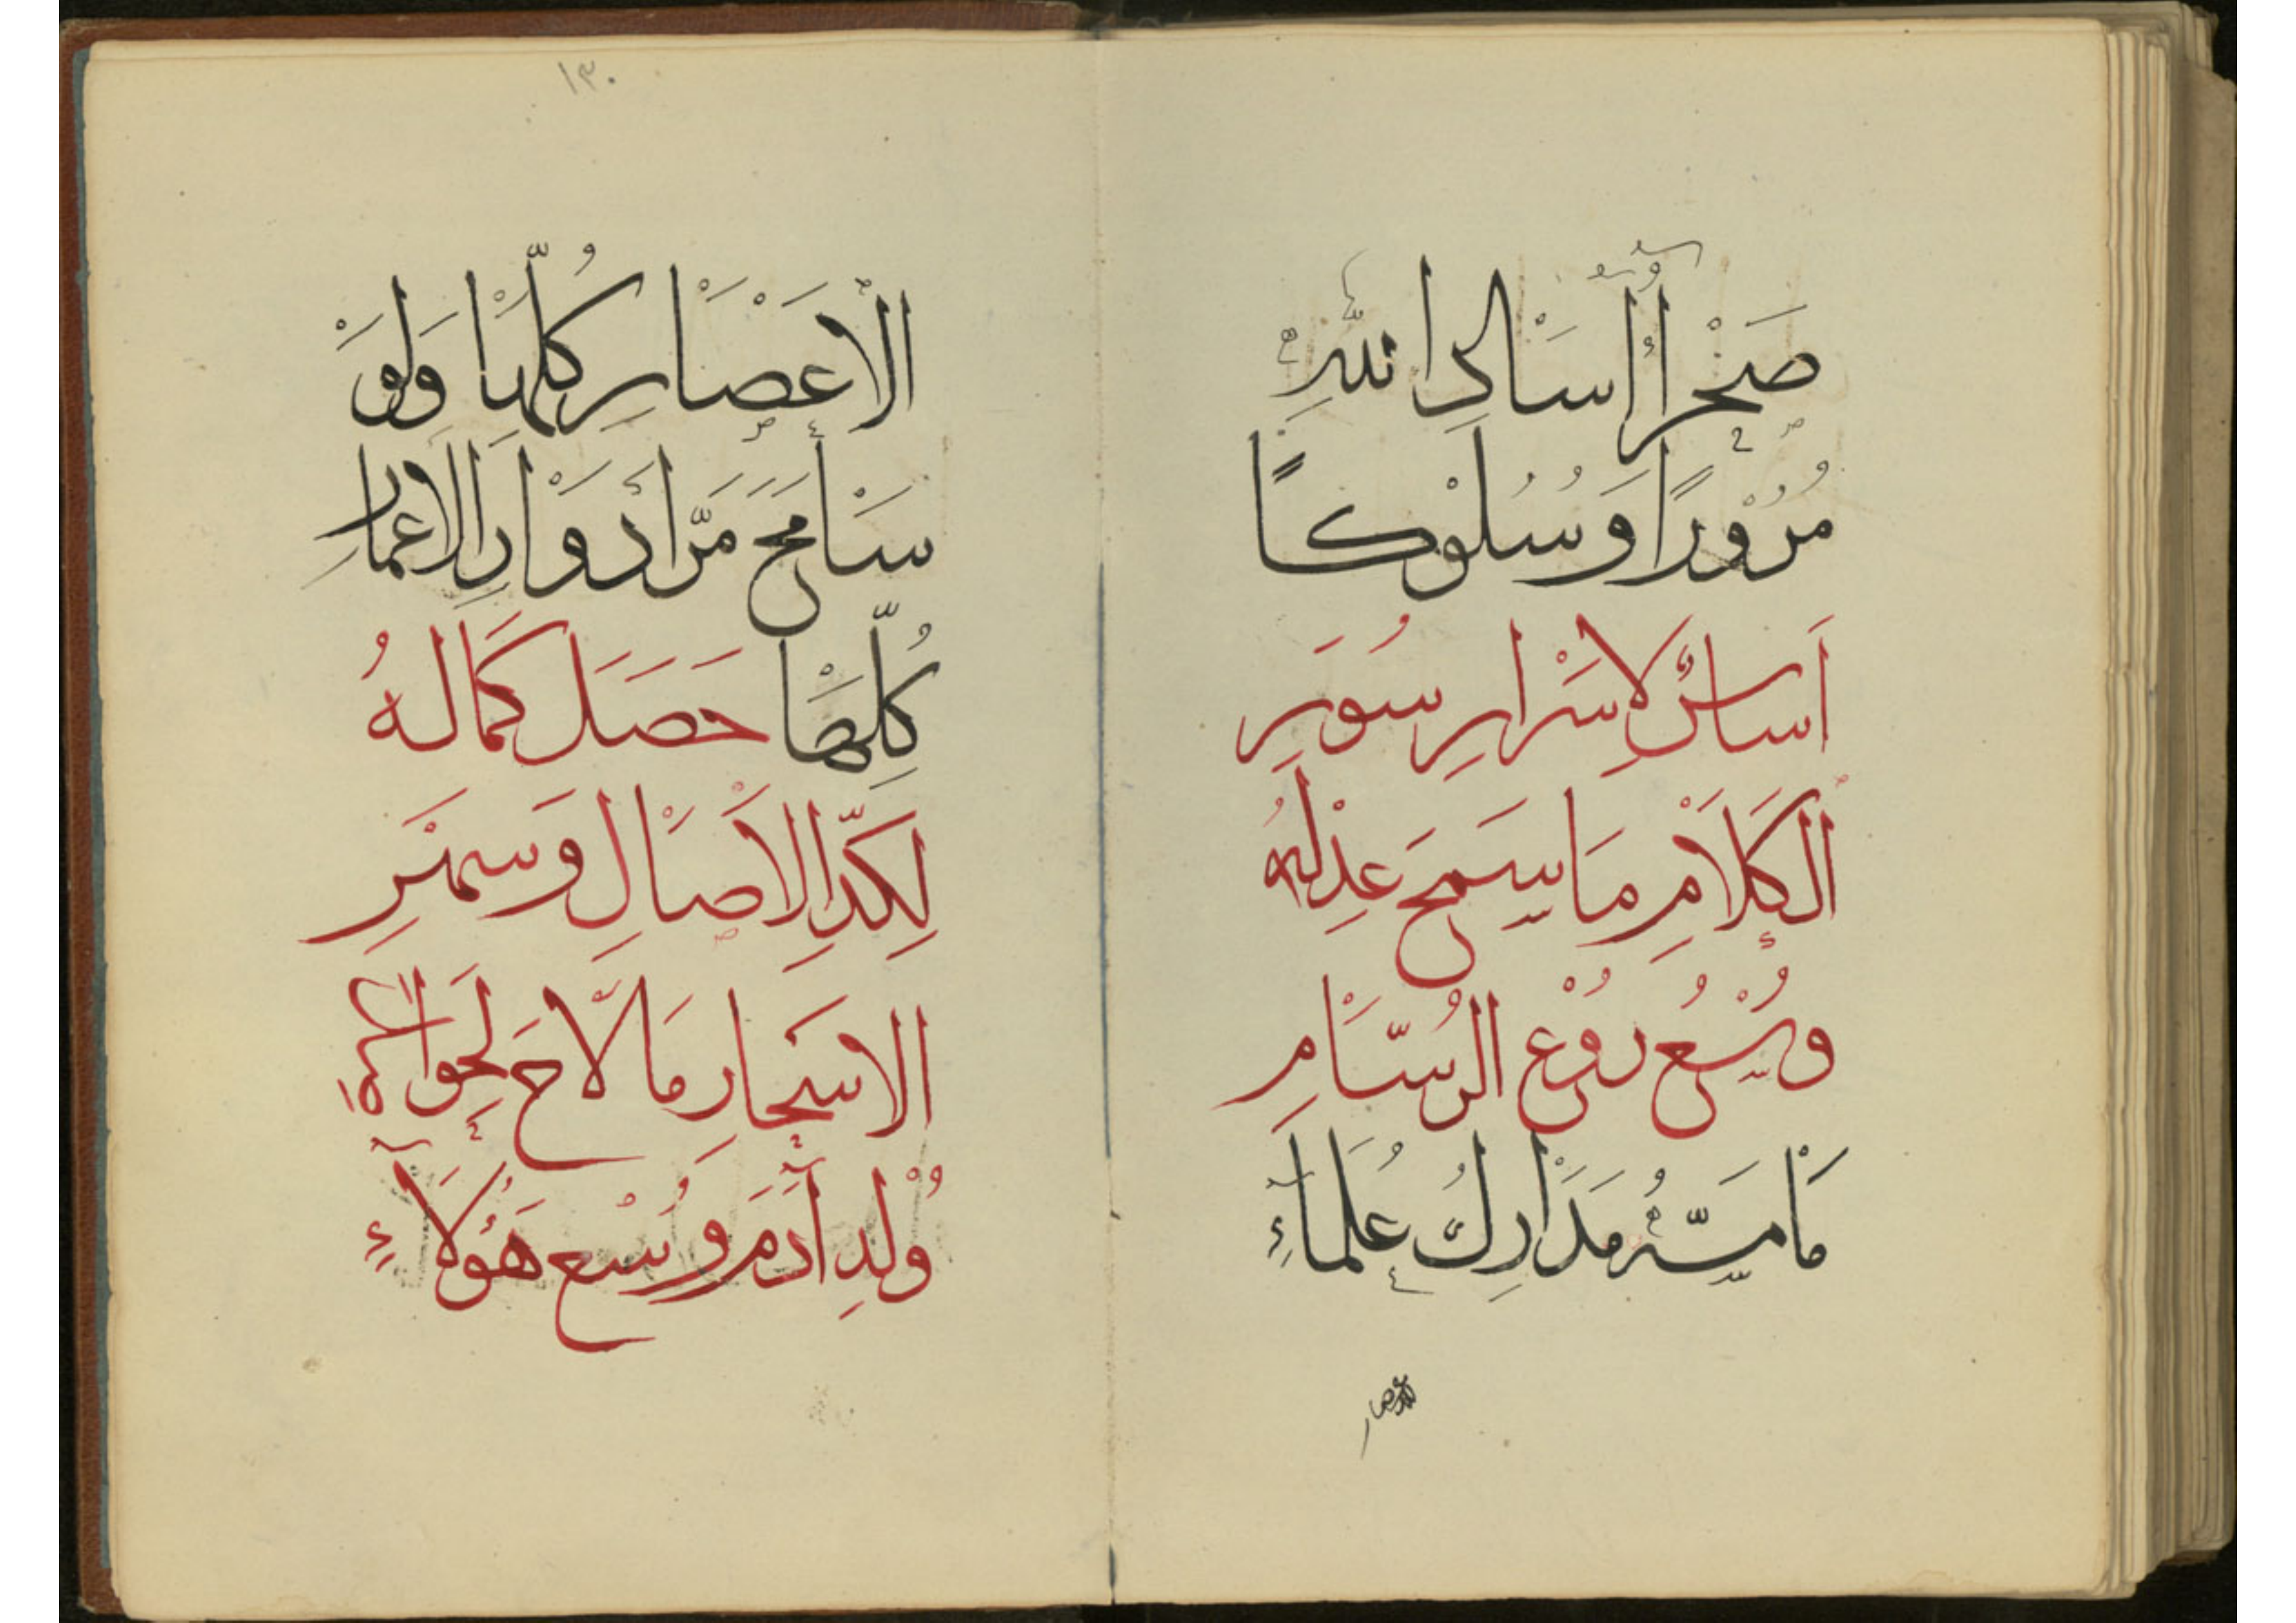 صَخْرٍ اُرْسَالِ اللهِ
مُرُوْرًا وَسُلُوْكًا
اَسَاسٌ لِاَسْرَارِ سُوَرِ
الْكَلَامِ مَا سَمَحَ عِدْلُهُ
وُسْعُ رُوْعِ الرُسَّامِ
مَا مَسَّهُ مَدَارِكُ عُلَمَاءِ
الاعصار
١٣٠
الْاَعْصَارِ كُلِّهَا وَلَوْ
سَامَحَ مَرَّ اَدْوَارِ الاعمارِ
كُلِّهَا حَصَلَ كَمَالُهُ
لِكَدِّ الْاَصَالِ وَسَمَرِ
الاسحارِ مَا لَاحَ لِحِوَا
وُلْدِ آدَمَ وَوُسْعِ هَؤُلَآءِ